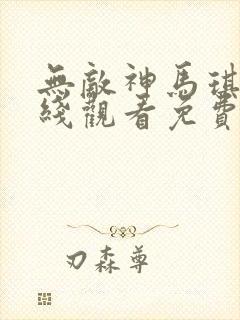 無敵神馬琪
綫觀看免費
刃森尊